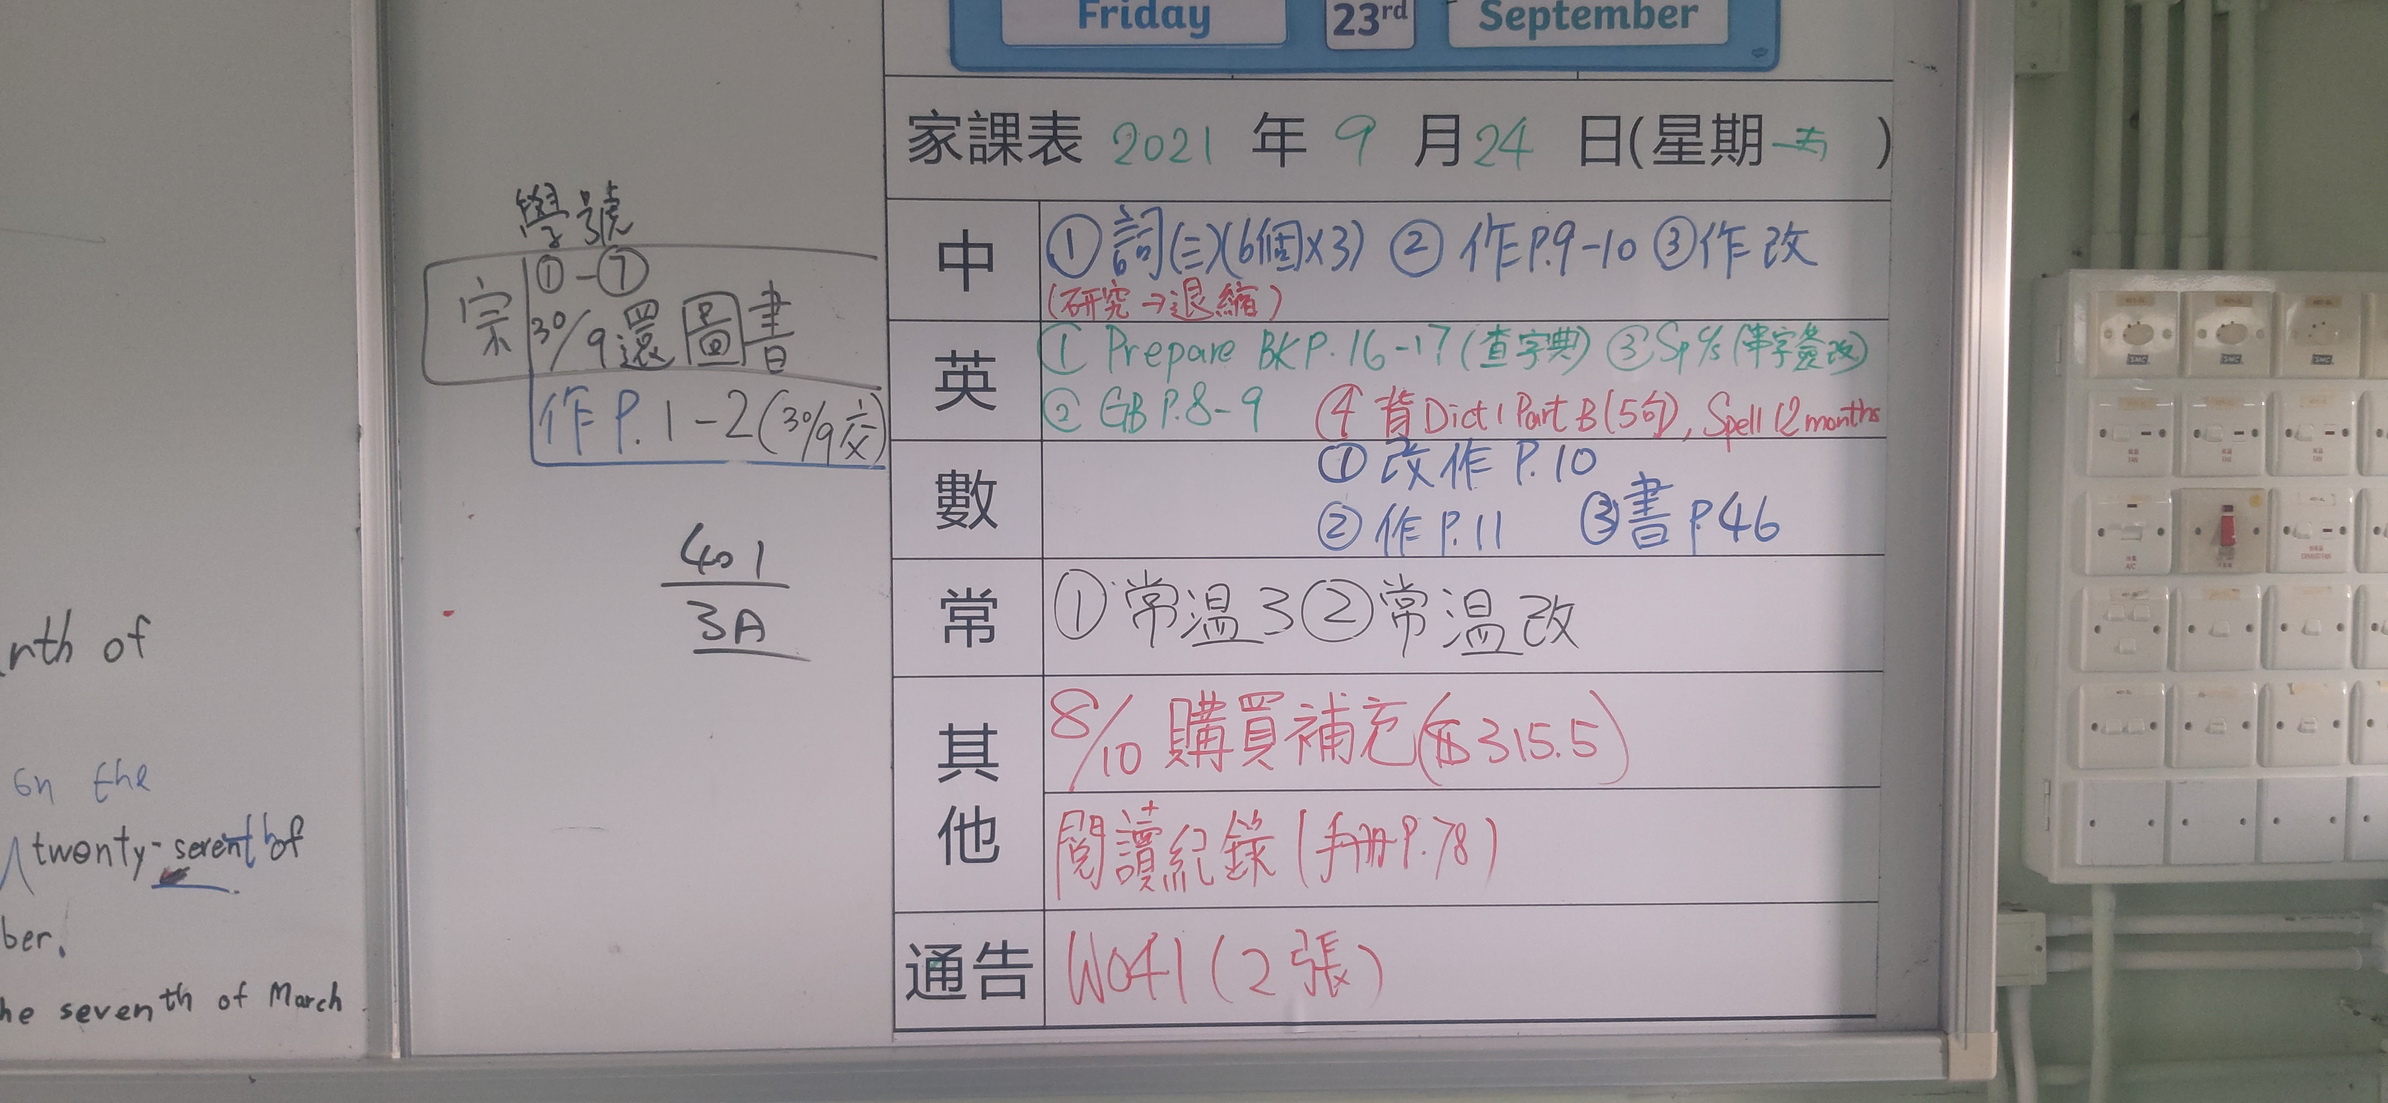 Friday 23rd September
家課表 2021 年 9 月 24 日(星期五)
中 ① 詞(三)(6個×3) ② 作P.9-10 ③作改
(研究→退縮)
英 ① Prepare BK P.16-17(查字典) ③ Sp c/s (串字簽改)
② GB P.8-9 ④ 背 Dict 1 Part B (5句), Spell 12 months
數 ① 改作 P.10
② 作 P.11 ③ 書 P.46
常 ① 常温3 ② 常温改
其他 8/10 購買補充($315.5)
閱讀紀錄(手冊P.78)
通告 W041(2張)
學號
①-⑦
宗 30/9還圖書
作 P.1-2(30/9交)
401
3A
of
on the
twenty-sevent of
ber.
he seventh of March